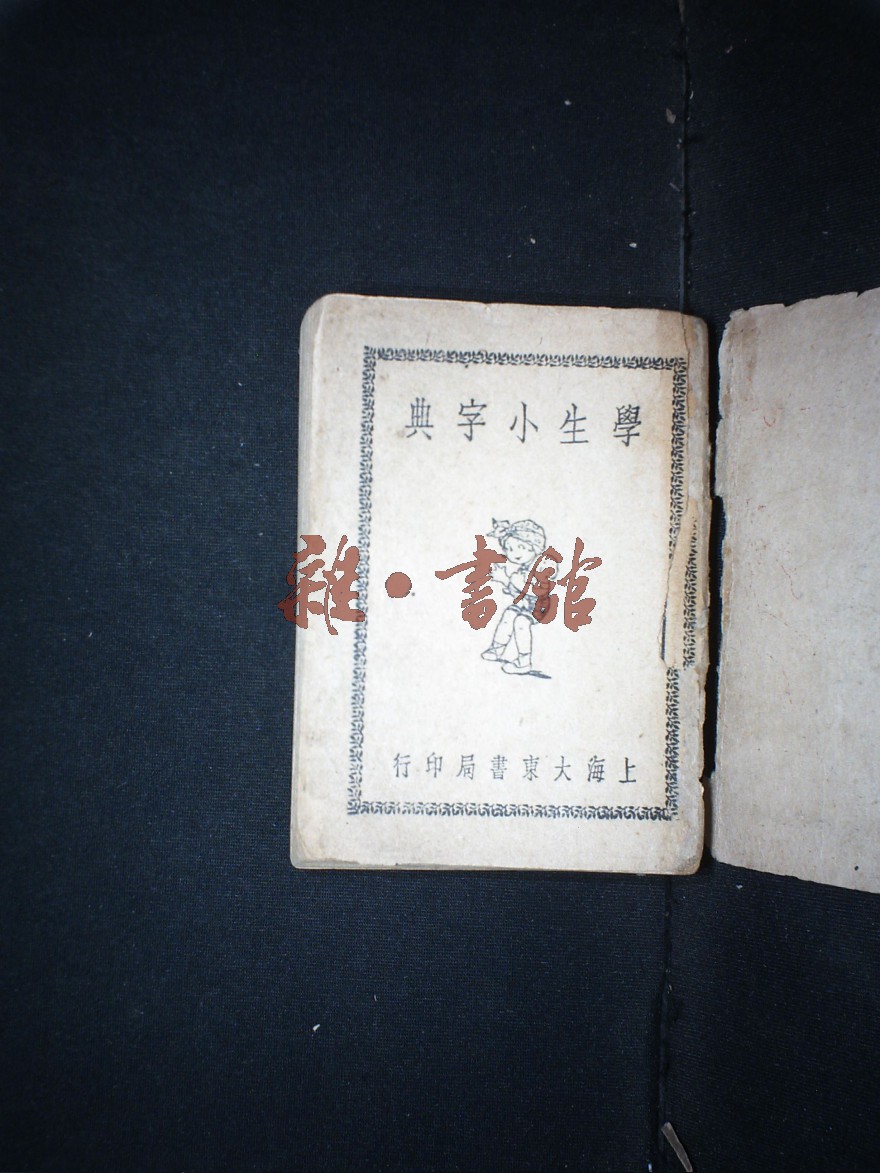 學生小字典
雜·書館
上海大東書局印行